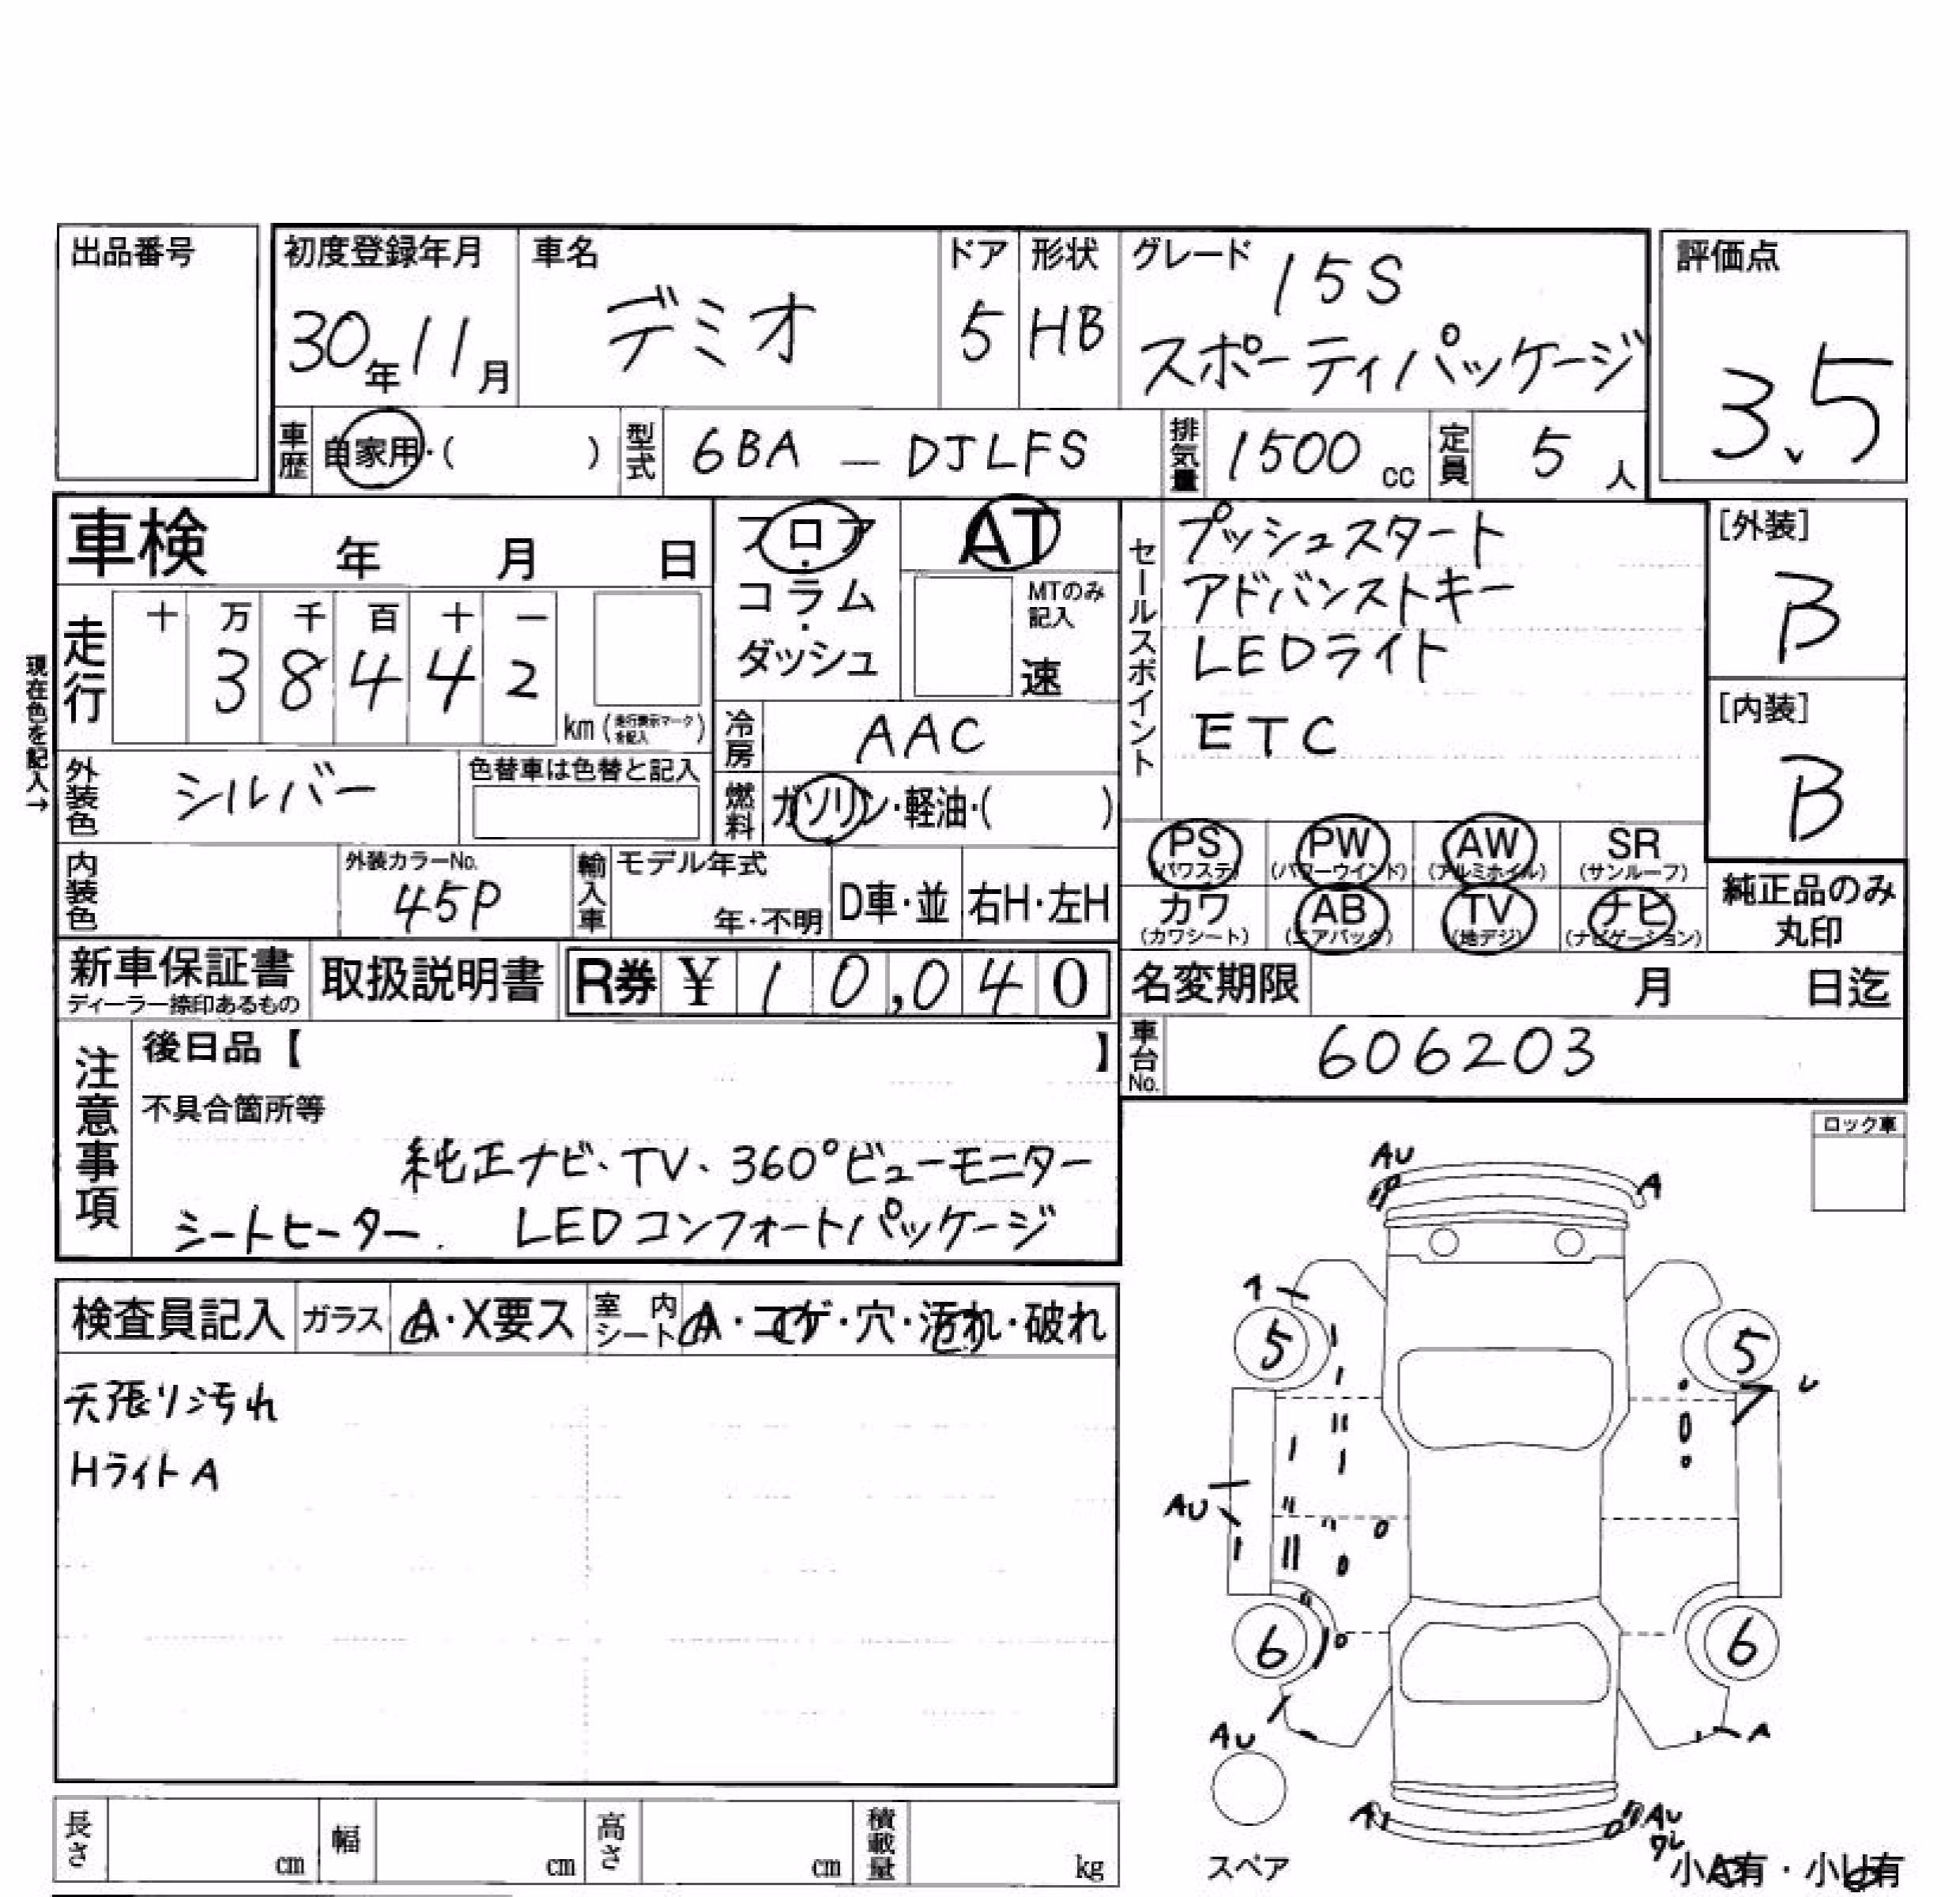 出品番号
初度登録年月 車名 ドア 形状 グレード 15S 評価点
30年11月 デミオ 5 HB スポーティパッケージ 3.5
車歴 自家用・( ) 型式 6BA — DJLFS 排気量 1500 cc 定員 5 人
車検 年 月 日
フロア・コラム・ダッシュ
AT
MTのみ記入
速
現在色を記入→
走行 十 万 千 百 十 一
3 8 4 4 2
km(走行表示マークを記入)
冷房 AAC
燃料 ガソリン・軽油・( )
外装色 シルバー 色替車は色替と記入
内装色 外装カラーNo. 45P 輸入車 モデル年式 年・不明 D車・並 右H・左H
セールスポイント
プッシュスタート
アドバンストキー
LEDライト
ETC
[外装]
B
[内装]
B
PS (パワステ) PW (パワーウインド) AW (アルミホイル) SR (サンルーフ)
カワ (カワシート) AB (エアバック) TV (地デジ) ナビ (ナビゲーション)
純正品のみ丸印
新車保証書 ディーラー捺印あるもの 取扱説明書 R券 ¥ 10,040
名変期限 月 日迄
車台No. 606203
注意事項
後日品【 】
不具合箇所等
純正ナビ、TV、360°ビューモニター
シートヒーター. LEDコンフォートパッケージ
ロック車
検査員記入 ガラス A・X要ス 室内シート A・コゲ・穴・汚れ・破れ
天張リ汚れ
HライトA
AU A
5 5
AU
6 6
AU A
A AU
スペア
小A有・小U有
長さ cm 幅 cm 高さ cm 積載量 kg